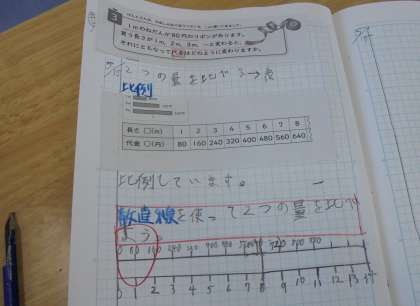 3
1mのねだんが80円のリボンがあります。
買う長さが1m、2m、3m、…と変わると、
それにともなって代金はどのように変わりますか。
2つの量を比べる→表
比例
長さ□(m) 1 2 3 4 5 6 7 8
代金○(円) 80 160 240 320 400 480 560 640
比例しています。
数直線を使って2つの量を比べ
よう。
0 1 2 3 4 5 6 7 8 9 10 11 12 13 14